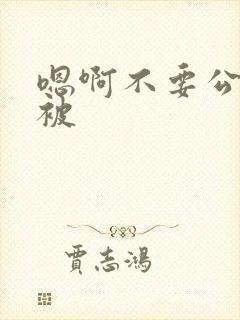 嗯啊不要公
被
贾志鸿